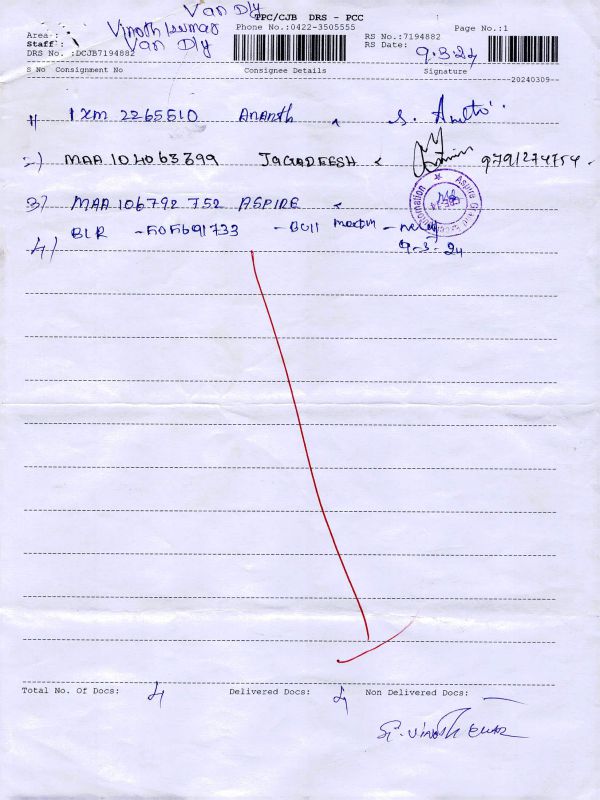 Van Dly
TPC/CJB DRS - PCC
Area : Vinoth kumar Phone No.:0422-3505555 Page No.:1
Staff : Van Dly RS No.:7194882
DRS No. :DCJB7194882 RS Date: 9.3.24
S No Consignment No Consignee Details Signature
20240309
1) IXM 2265510 Ananth S.
2) MAA 104063899 JAGADEESH 9791274754
3) MAA 106792 752 ASPIRE
4) BLR - 505691733 - Bull
9-3-24
Total No. Of Docs: 4 Delivered Docs: 4 Non Delivered Docs: —
S. Vinoth kumar